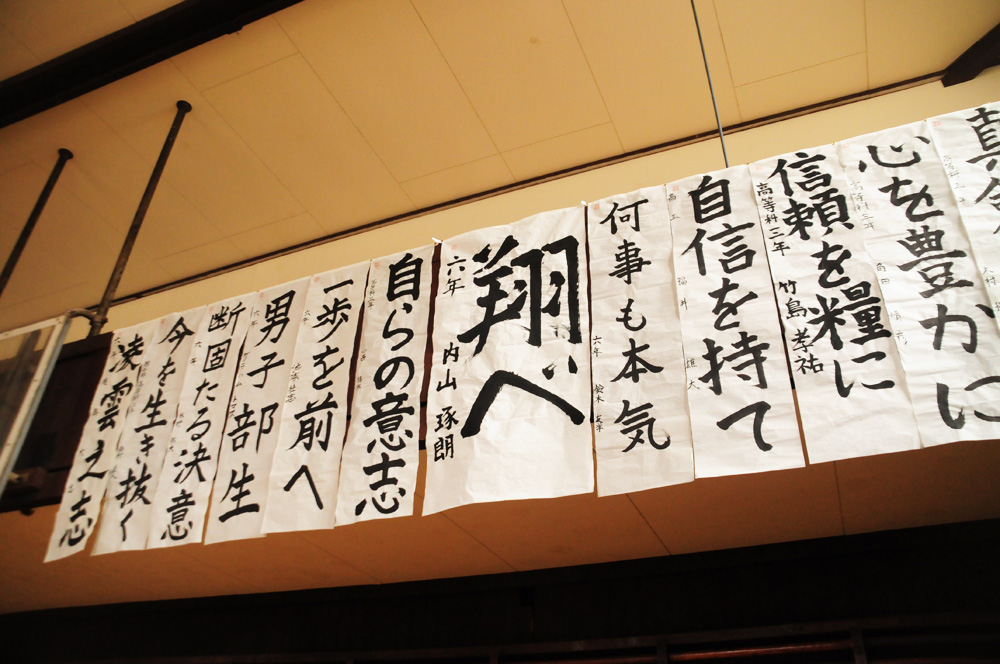 心を豊かに
信頼を糧に
高等科三年 竹島 孝祐
自信を持て
何事も本気
六年
翔べ
六年 内山 琢朗
自らの意志
一歩を前へ
男子部生
断固たる決意
今を生き抜く
凌雲之志